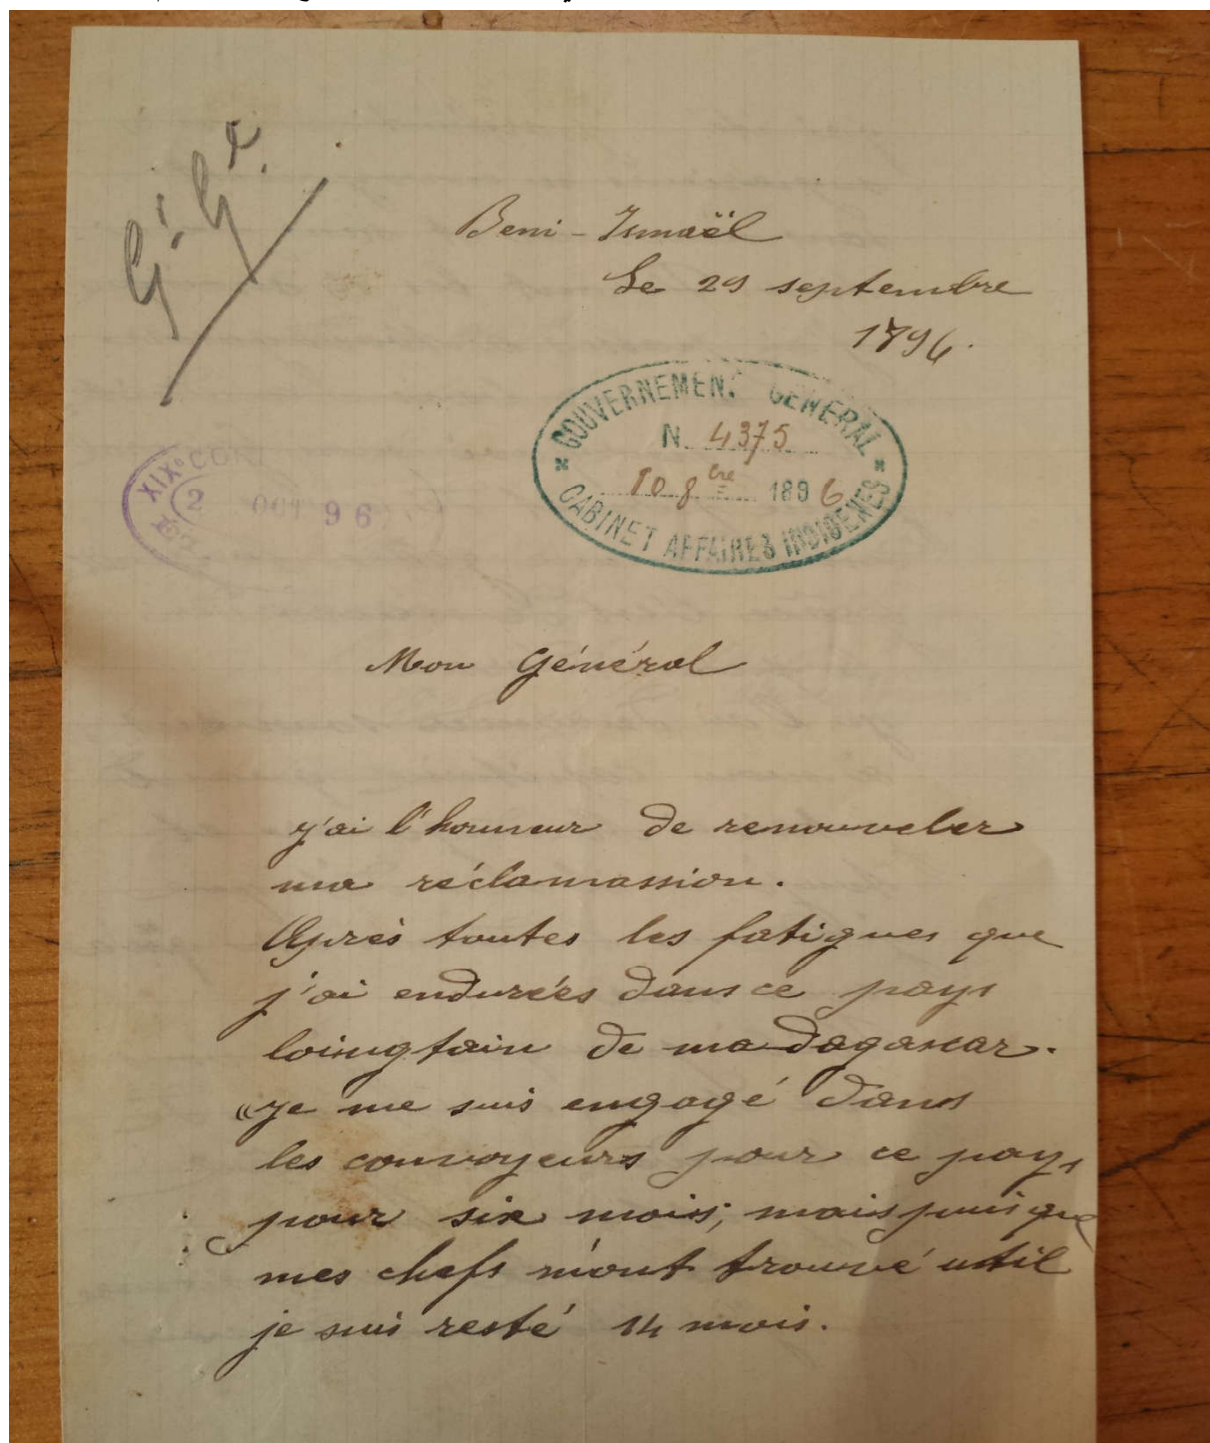 G. Gal.
Beni-Ismaël
Le 29 septembre
1896.
GOUVERNEMENT GÉNÉRAL
N. 4375
10 8bre 1896
CABINET AFFAIRES INDIGÈNES
XIXe
2 OCT 96
Mon Général
j'ai l'honneur de renouveler
ma réclamassion.
Après toutes les fatigues que
j'ai endurées dans ce pays
loingtain de madagascar.
"je me suis engagé dans
les convoyeurs pour ce pays
pour six mois; mais puis que
mes chefs m'ont trouvé util
je suis resté 14 mois.